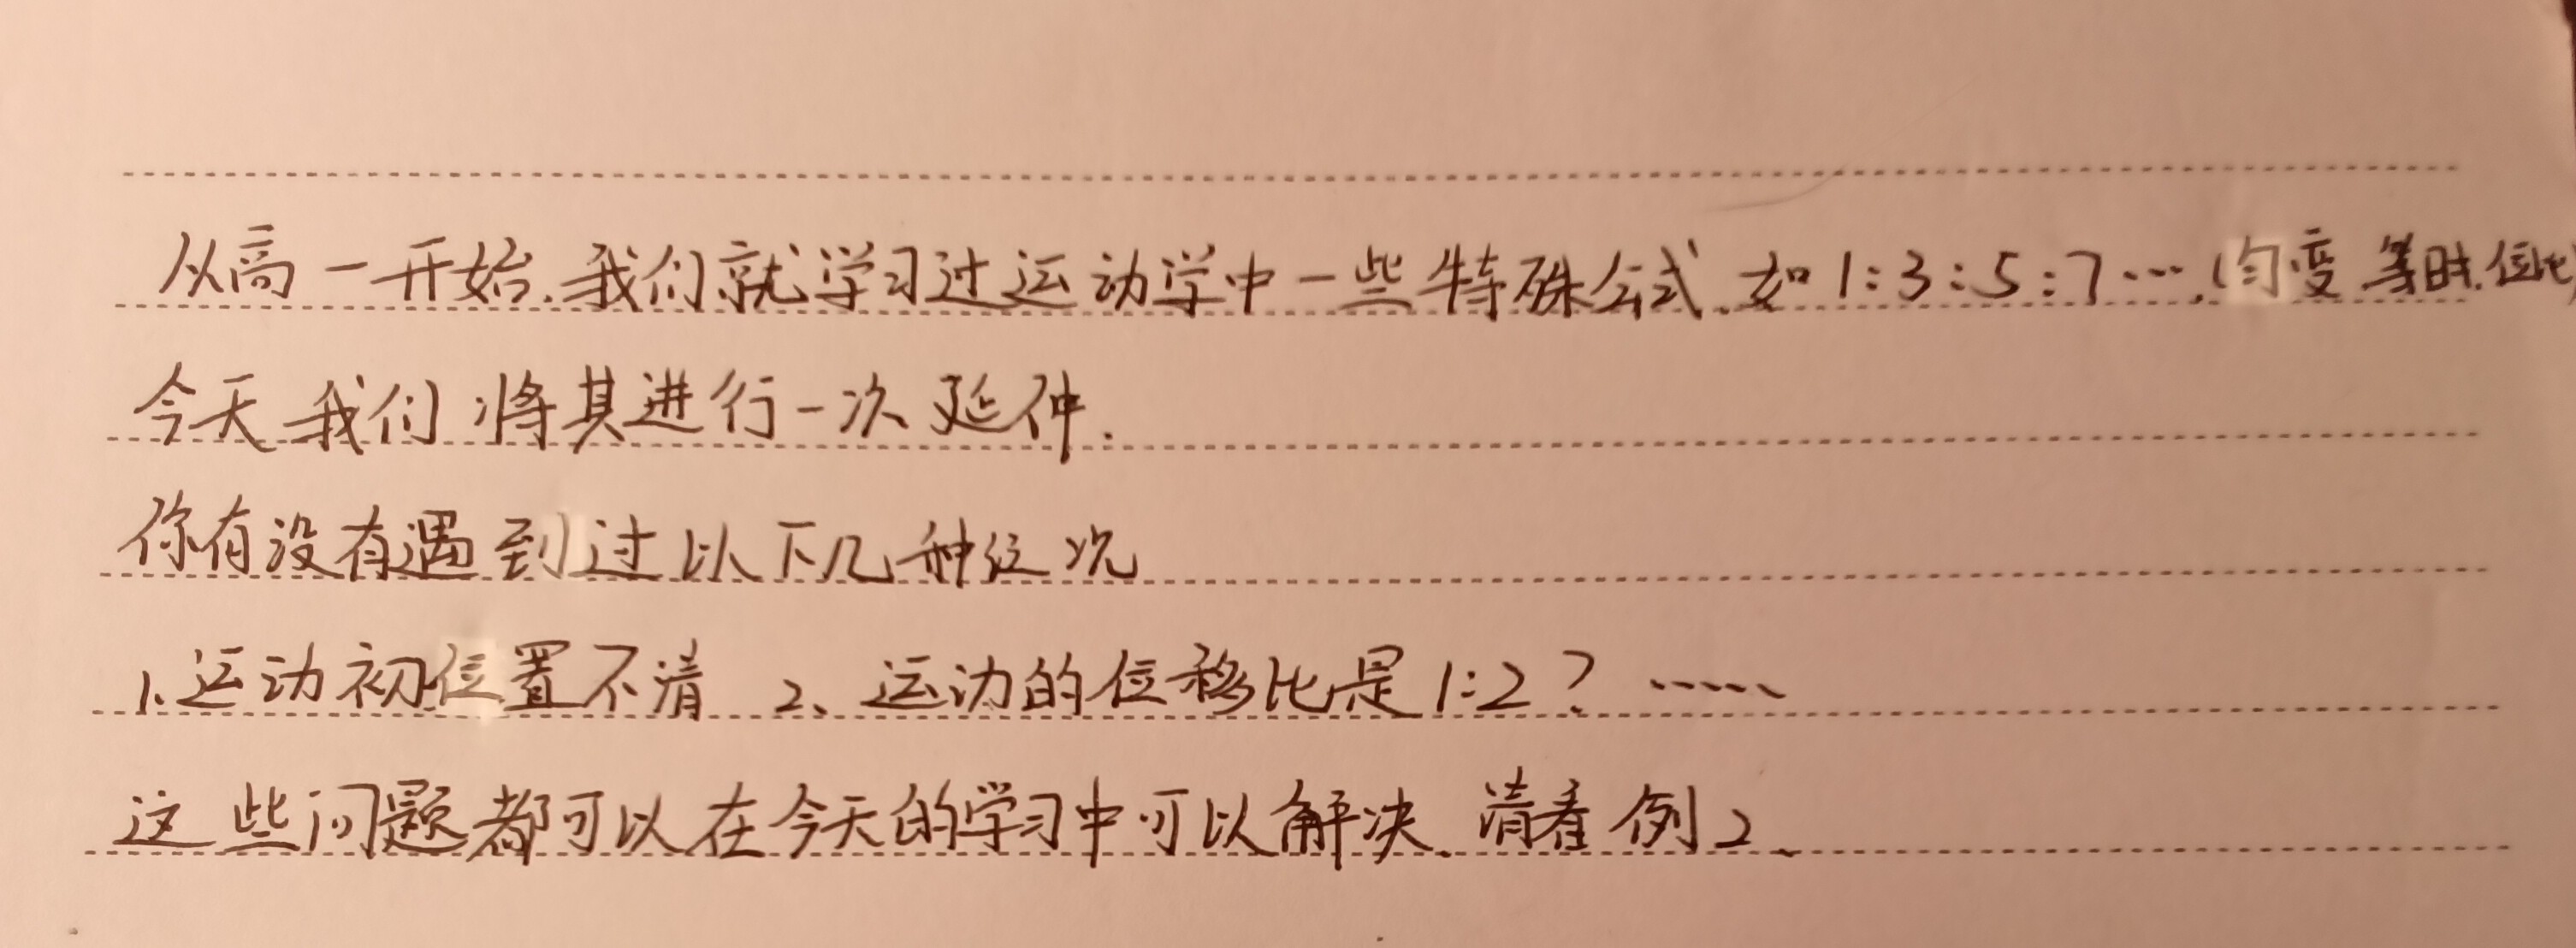 从高一开始.我们就学习过运动学中一些特殊公式.如1:3:5:7….(匀变 等时.位比)
今天我们将其进行一次延伸.
你有没有遇到过以下几种
1.运动初位置不清 2、运动的位移比是1:2? ……
这些问题都可以在今天的学习中可以解决.请看例2、